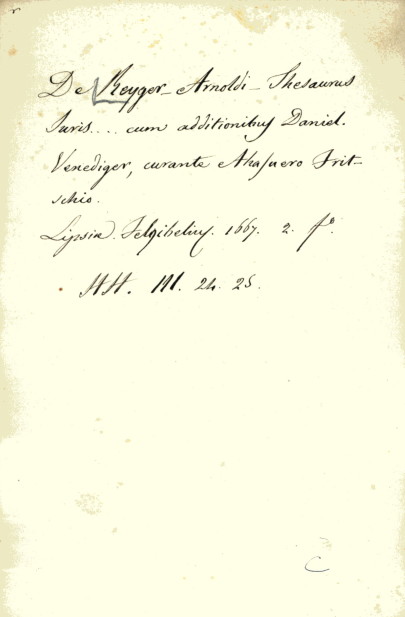 De Reyger - Arnoldi - Thesaurus
Juris.... cum additionibus Daniel.
Venediger, curante Ahasuero Frit-
schio.
Lipsiæ. Felgibelius. 1667. 2. fº.
HH. III. 24. 25.
C